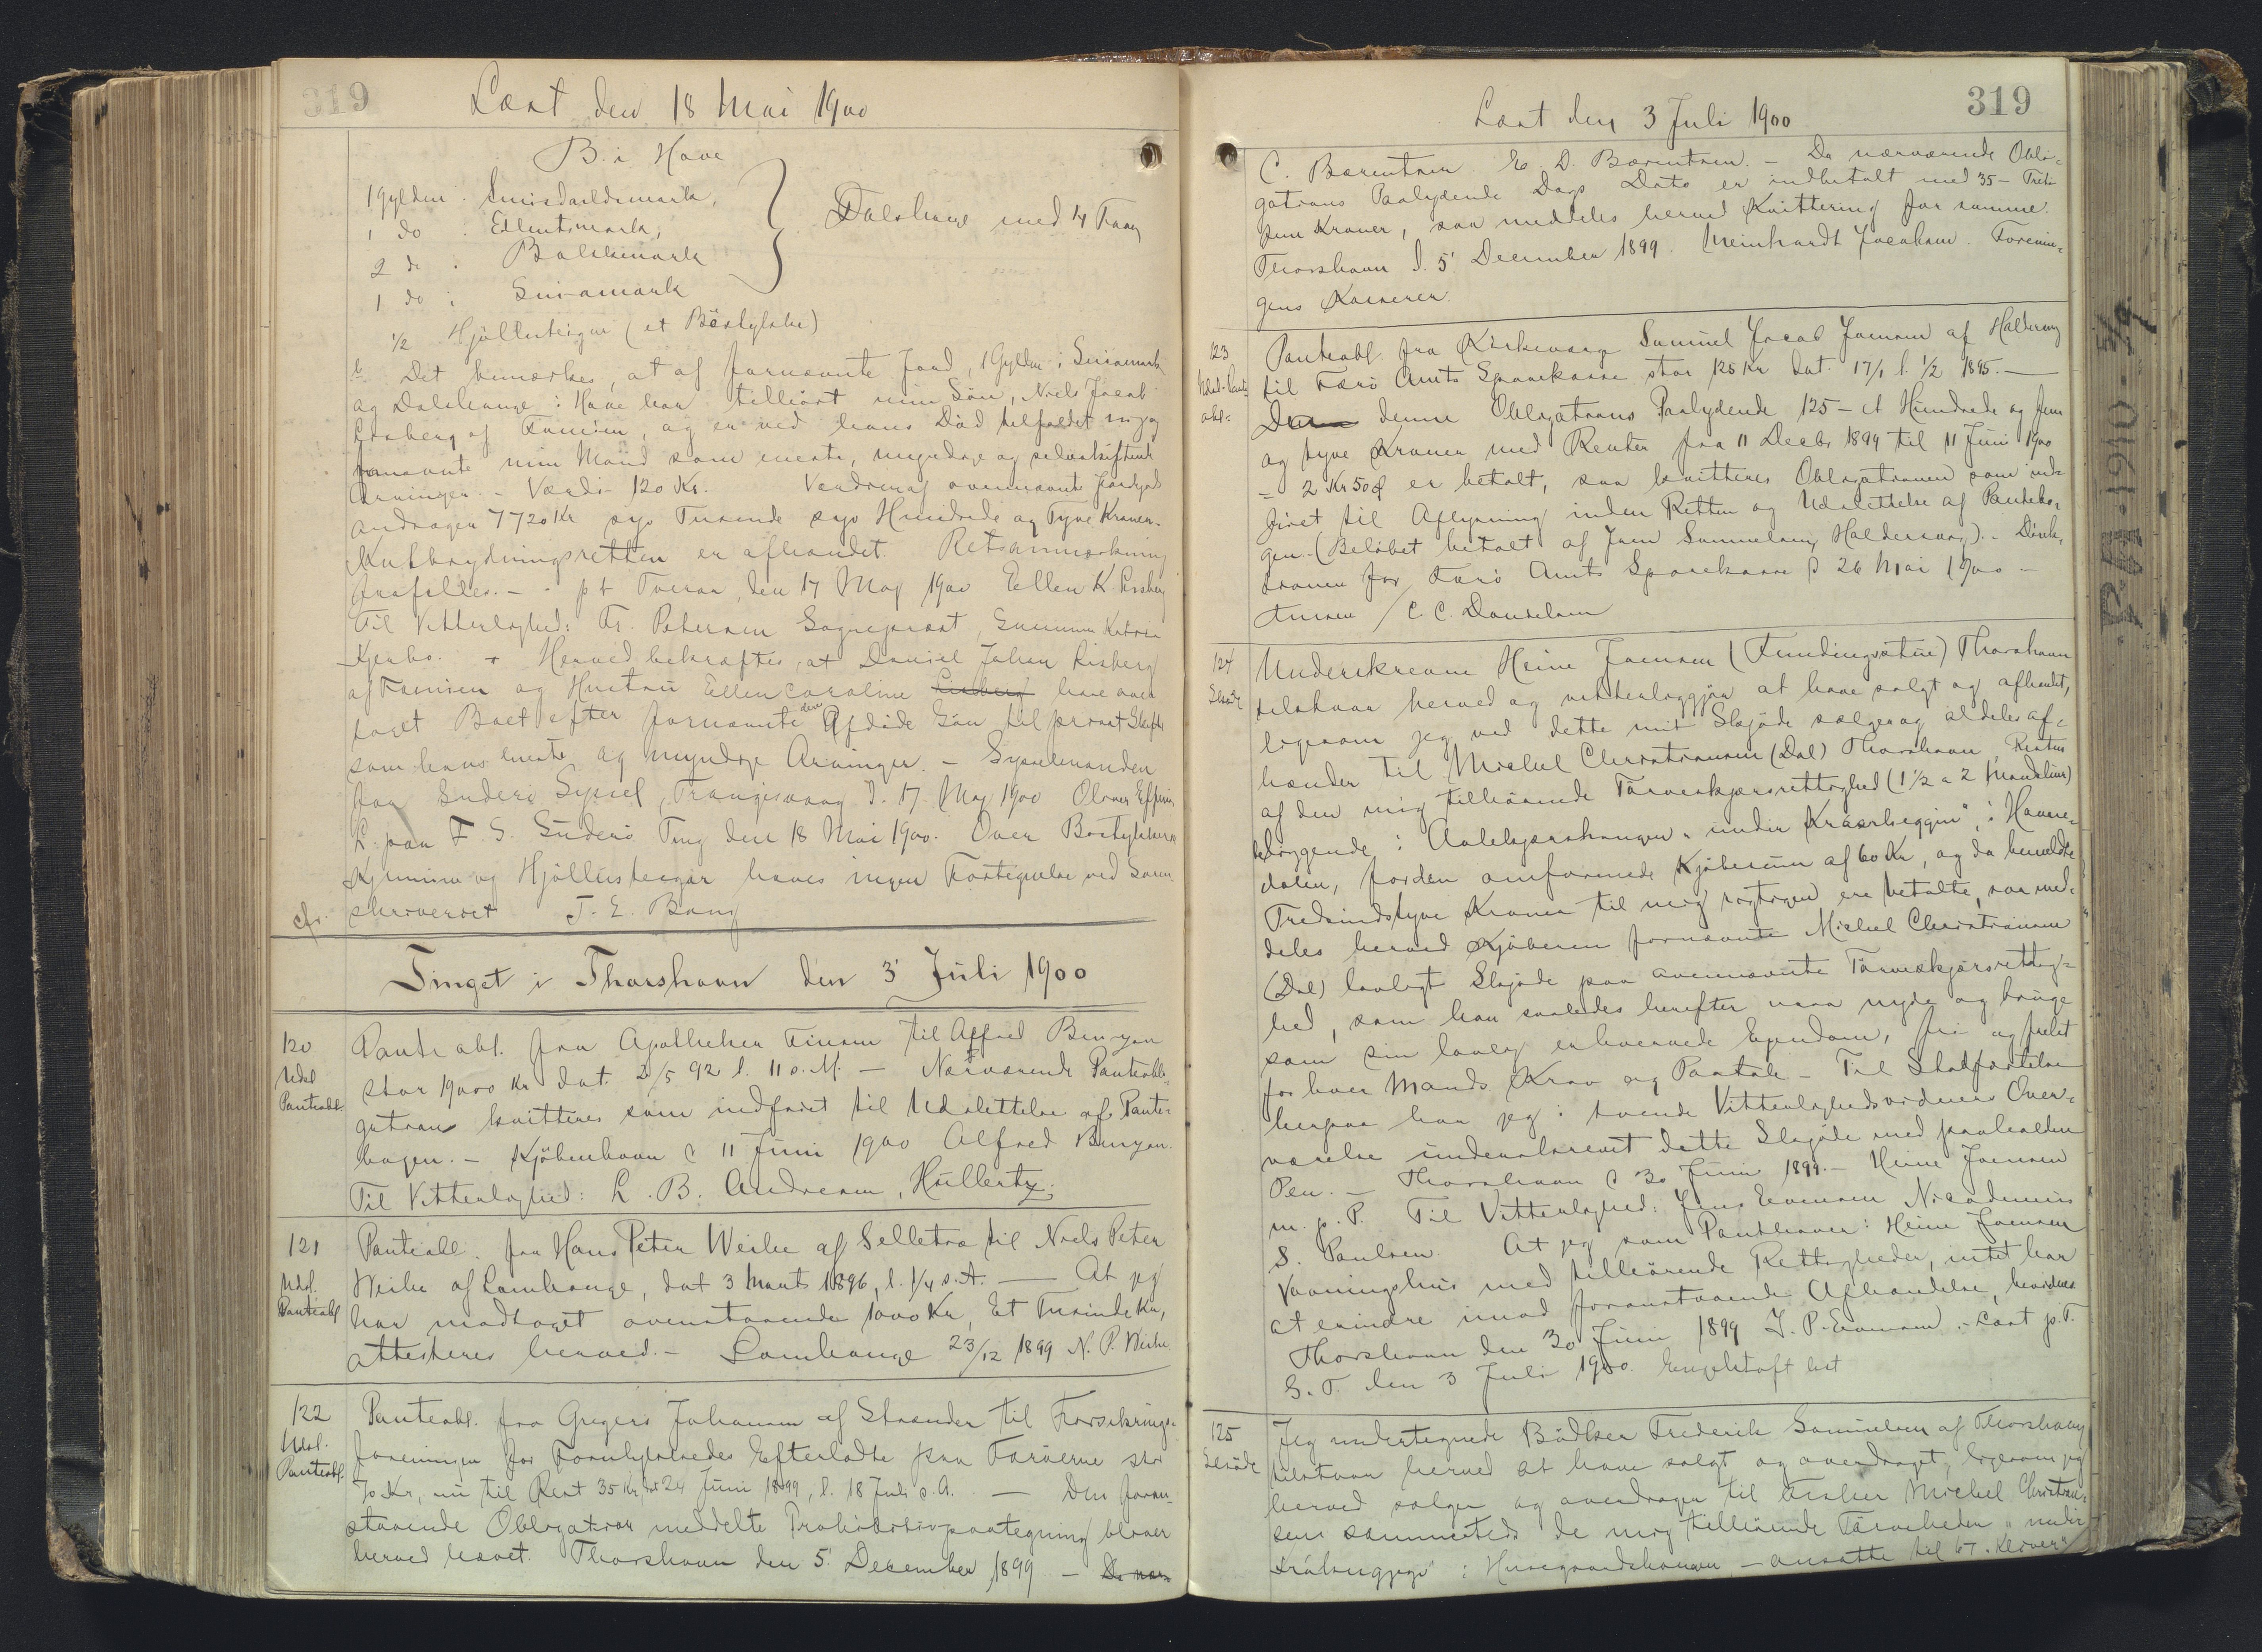 319
Læst den 18 Mai 1900
B. i Have
1 Gylden i
1 do i Ellentsmark,
2 do i Bolskmark
1 do i
Dalshauge med 4 Faar
1/2 Hjøllusteigur (et Böstykke)
b Det bemærkes, at af fornævnte Jord, 1 Gylden i
og Dalshauge i Have har tilhört min Sön, Niels Jacob
Lisberg af Famien, og er ved hans Död tilfaldet mig og
fornævnte min Mand som eneste, myndige og selvskiftende
Arvinger. - Værdi 120 Kr. Værdien af ovennævnte Jordgods
andrager 7720 Kr syv Tusende syv Hundrede og Tyve Kroner.
er afhandlet. Retsanmærkning
frafaldes. - - p t Tveraa, den 17 Maj 1900 Ellen K. Lisberg
Til Vitterlighed: Fr. Petersen Sognepræst, Katrin
Kjerbo. + Herved bekræftes, at Daniel Johan Lisberg
af Famien og Hustru Ellen Caroline Lisberg have over
taget Boet efter fornævnte den Afdöde Sön til privat Skifte
som hans eneste og myndige Arvinger. - Sysselmanden
for Suderö Syssel, Trangisvaag d. 17 Maj 1900 Oliver Effersöe
L. paa F. S. Suderö Ting den 18 Mai 1900. Over Bostykkerne
og Hjøllusteigar haves ingen Fortegnelse ved Soren-
cfr. skriveriet J. E. Bang
Tinget i Thorshavn den 3' Juli 1900
120 Pante obl. fra Apotheker Finsen til Alfred Benzon
Udsl. stor 19000 Kr dat. 2/5 92 l. 11 s. M. - Nærværende Panteobli-
Panteobl. gation kvitteres som indfriet til Udslettelse af Pante-
bogen. - Kjöbenhavn d 11 Juni 1900 Alfred Benzon.
Til Vitterlighed: L. B. Andresen, Hüllertz.
121 Panteobl. fra Hans Peter Weihe af Selletræ til Niels Peter
Udsl. Weihe af Lamhauge, dat 3 Marts 1896, l. 1/4 s. A. - At jeg
Panteobl har modtaget ovenstaaende 1000 Kr, Et Tusinde Kr,
attesteres herved. - Lamhauge 23/12 1899 N. P. Weihe
122 Panteobl. fra Gregers Johansen af Strænder til Forsikrings-
Udsl. foreningen for Forulykkedes Efterladte paa Færöerne stor
Panteobl. 70 Kr, nu til Rest 35 Kr, dat 24 Juni 1899, l. 18 Juli s. A. - Den foran-
staaende Obligation meddelte Prohibitivpaategning bliver
herved hævet. Thorshavn den 5' December 1899 - Da nær-
319
Læst den 3 Juli 1900
C. Bærentsen E. D. Bærentsen. - Da nærværende Obli-
gations Paalydende Dags Dato er indbetalt med 35 - Treti
fem Kroner, saa meddeles herved Kvittering for samme.
Thorshavn d. 5' December 1899. Meinhardt Jacobsen. Forenin-
gens Kasserer.
123 Panteobl. fra Kirkeværge Samuel Jacob Joensen af Haldersvig
til Færö Amts Sparekasse stor 125 Kr dat. 17/1 l. 1/2 1895. -
denne Obligations Paalydende 125 - et Hundrede og fem
og tyve Kroner med Renter fra 11 Decbr 1899 til 11 Juni 1900
= 2 Kr 50 Ø er betalt, saa kvitteres Obligationen som ind-
friet til Aflysning inden Retten og Udslettelse af Pantebo-
gen. (Belöbet betalt af Joen Samuelsen, Haldersvig). - Direk-
tionen for Færö Amts Sparekasse d 26 Mai 1900 -
/ C. C. Danielsen
124 Underskrevne Heine Joensen (Fundingsstue) Thorshavn
Skjöde tilstaar herved og vitterliggjör at have solgt og afhændet,
ligesom jeg ved dette mit Skjöde sælger og aldeles af-
hænder til Michel Christiansen (Dal) Thorshavn, Resten
af den mig tilhörende Törveskjærsrettighed (1 1/2 a 2 )
beliggende i under , i Havne-
dalen, for den omforenede Kjöbesum af 60 Kr, og da bemeldte
Tredsindstyve Kroner til mig rigtigen ere betalte, saa med-
deles herved Kjöberen fornævnte Michel Christiansen
(Dal) lovligt Skjöde paa ovennævnte Törveskjærsrettig-
hed, som han saaledes herefter maa nyde og bruge
som sin lovlig erhvervede Ejendom, fri og frelst
for hver Mands Krav og Paatale - Til Stadfæstelse
herpaa har jeg i tvende Vitterlighedsvidners Over-
værelse underskrevet dette Skjöde med paaholden
Pen. - Thorshavn d 30 Juni 1899. - Heine Joensen
m. p. P. Til Vitterlighed: Jens Evensen Nicodemus
S. Poulsen. At jeg som Panthaver i Heine Joensen
Vaaningshus med tilhörende Rettigheder, intet har
at erindre imod foranstaaende Afhændelse, bevidnes
Thorshavn den 30 Juni 1899 J. P. Evensen. - Læst p. T.
S. T. den 3 Juli 1900. Engelstoft cst
125 Jeg undertegnede Bödker Frederik Samuelsen af Thorshavn
Skjöde tilstaar herved at have solgt og overdraget, ligesom jeg
herved sælger og overdrager til Michel Christian-
sen sammesteds de mig tilhörende Törveheder "under
" i Husegaardshaugen - ansatte til 67 Kroner